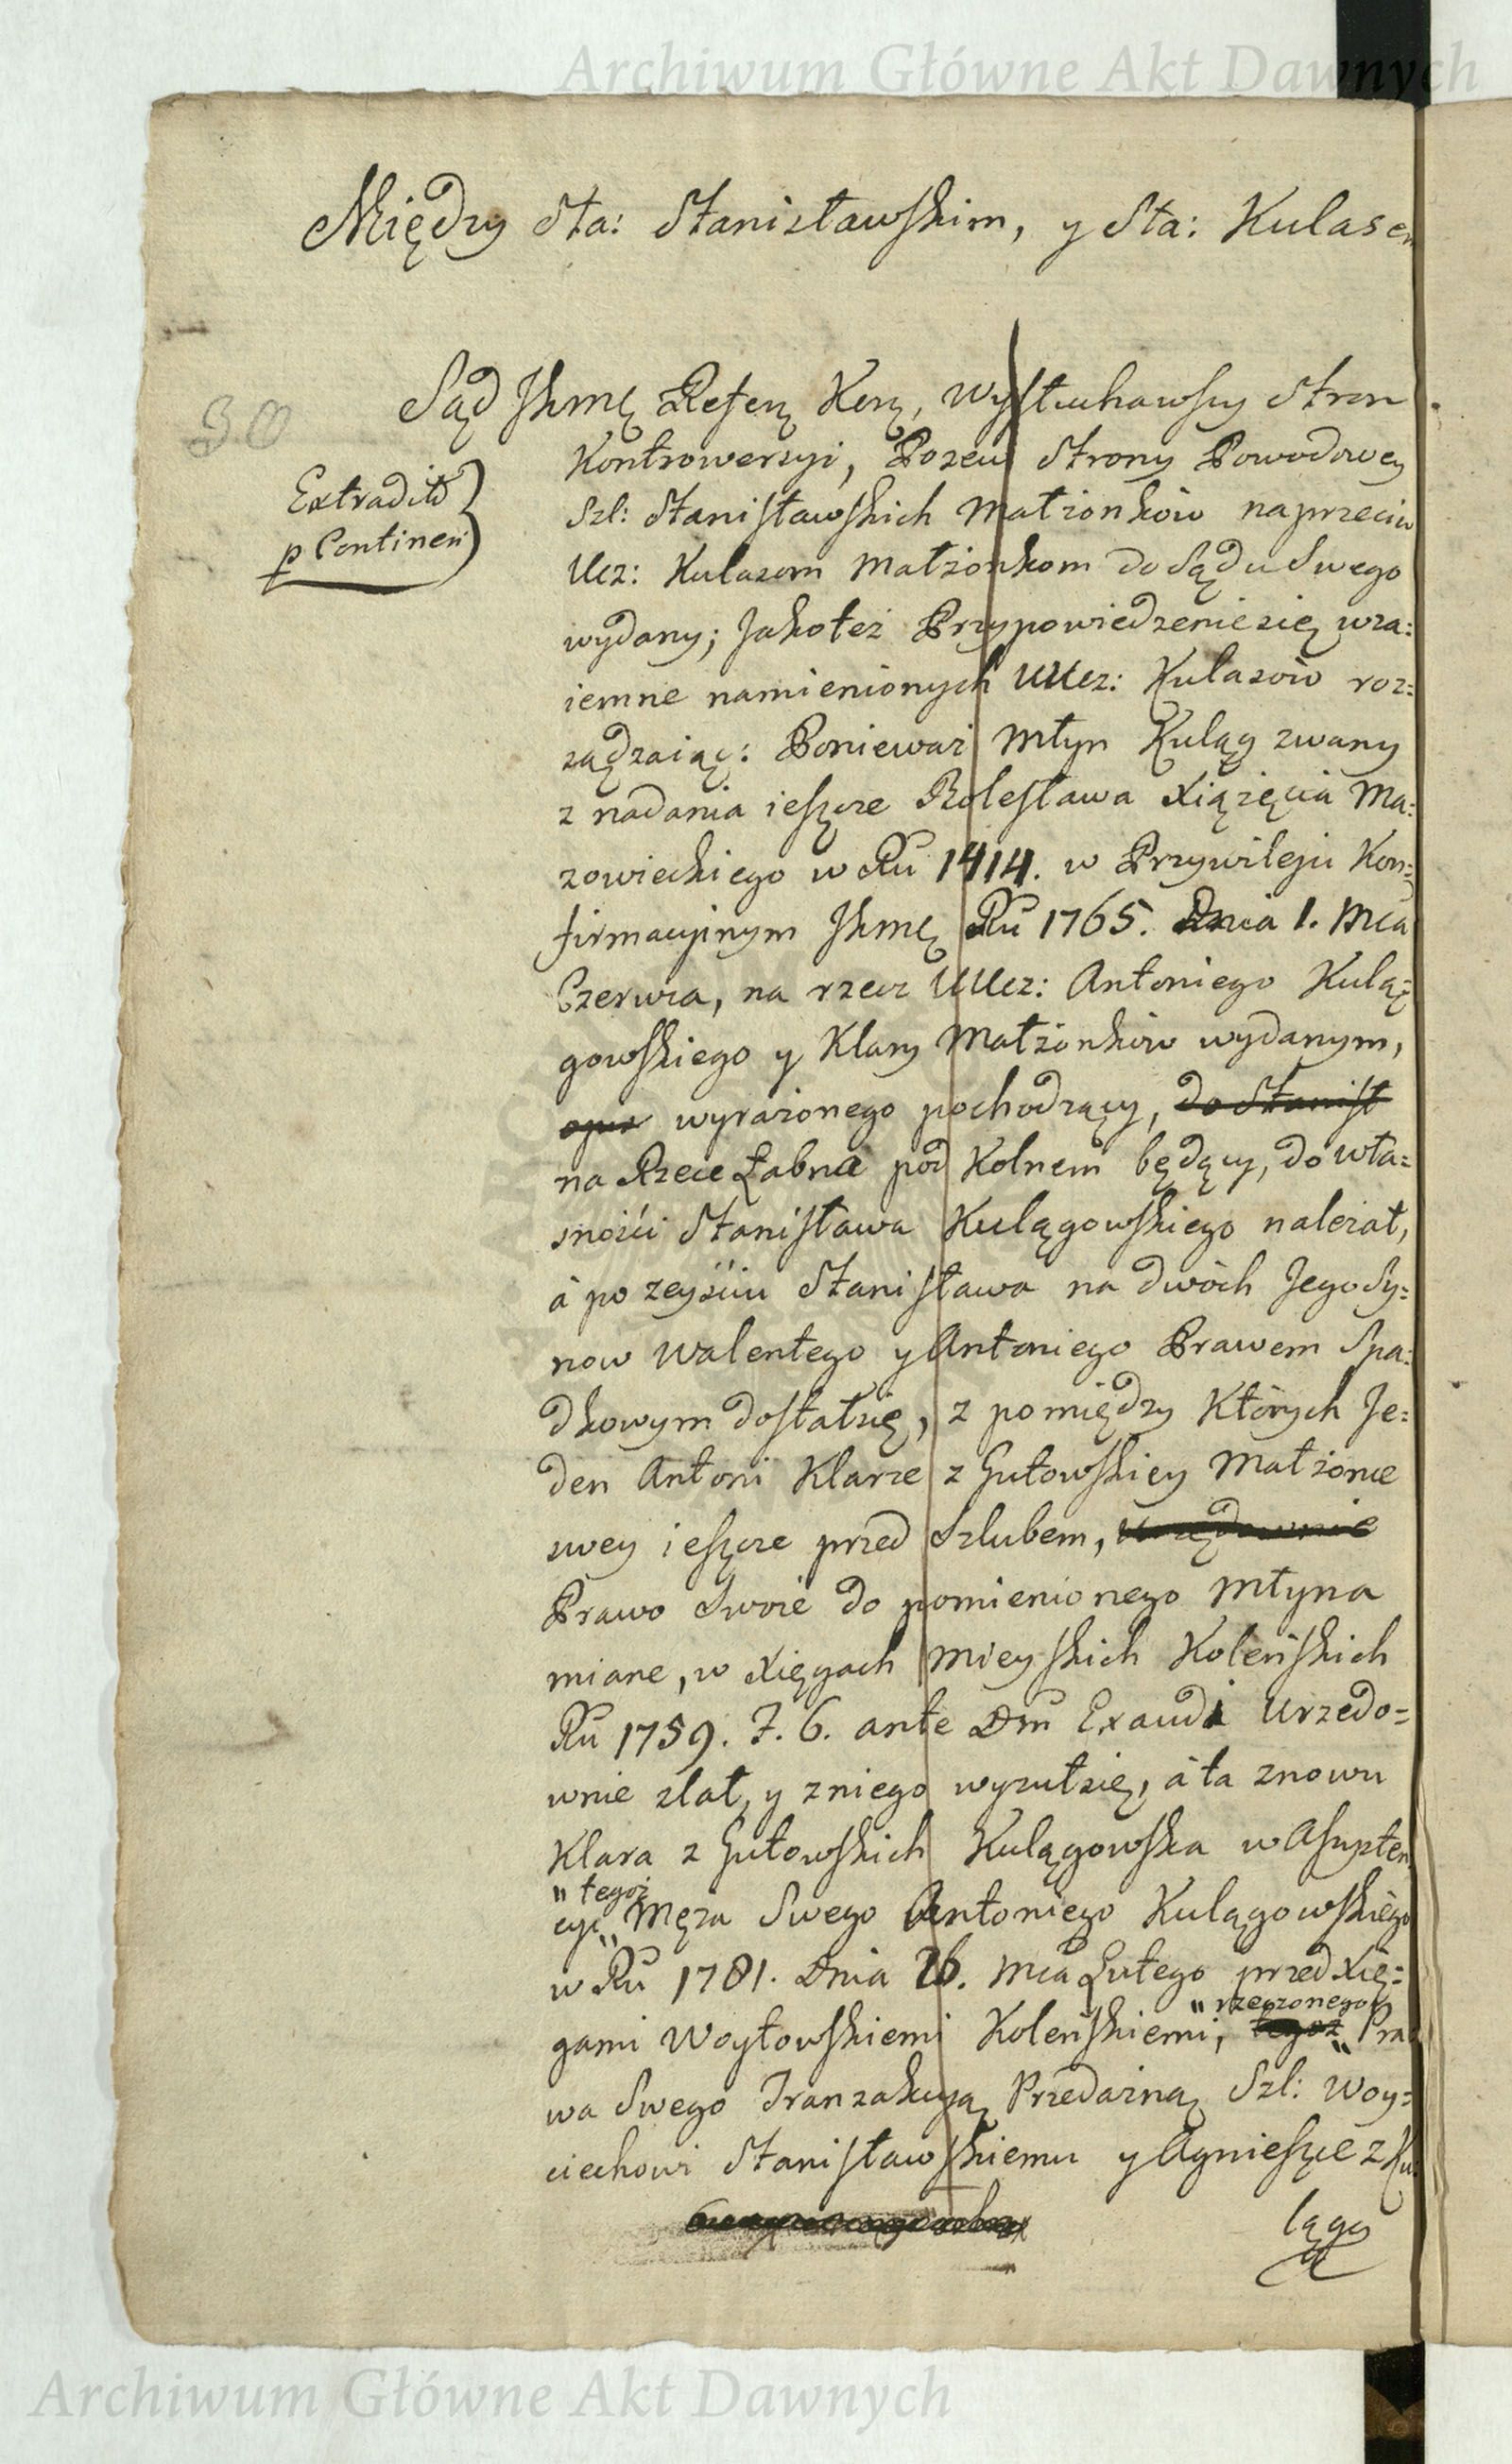 Archiwum Główne Akt Dawnych
Między Sta: Stanisławskim, y Sta: Kulasem
30
Extradit
p Continen
Sąd JKmę Refery Kory, wysłuchawszy Stron
Kontrowersyi, Pozew Strony Powodowey
Szl: Stanisławskich Małżonków naprzeciw
Ucz: Kulasom Małżonkom do Sądu Swego
wydany; Jakoteż Przypowiedzenie się wza:
iemne namienionych UUcz: Kulasów roz:
sądzaiąc: Ponieważ Młyn Kuląg zwany
z nadania ieszcze Bolesława Xiążęcia Ma:
zowieckiego w Ru 1414. w Przywileju Kon:
firmacyinym JKmę Ru 1765. Dnia 1. Mca
Czerwca, na rzecz UUcz: Antoniego Kulą:
gowskiego y Klary Małżonków wydanym,
wyrażonego pochodzący, do Stanisł
na Rzece Łabna pod Kolnem będący, do wła=
sności Stanisława Kulągowskiego należał,
à po zeyściu Stanisława na dwóch Jego Sy:
now Walentego y Antoniego Prawem Spa:
dkowym dostał się, z pomiędzy Których Je:
den Antoni Klarze z Gutowskiey Małżonce
swey ieszcze przed Szlubem, Urzędownie
Prawo Swoie do pomienionego Młyna
miane, w Xięgach Mieyskich Koleńskich
Ru 1759. F. 6. ante Dm Exaudi Urzedo=
wnie zlał, y z niego wyzuł się, à ta znowu
Klara z Gutowskich Kulągowska w Asysten
"tegoż
cyi " Męża Swego Antoniego Kulągowskiego
w Ru 1781. Dnia 26. Mca Lutego przed Xię=
"rzeczonego
gami Woytowskiemi Koleńskiemi, tegoż " Pra
wa Swego Tranzakcyą Przedażną Szl: Woy=
ciechowi Stanisławskiemu y Agnieszce z Ku
lągo
Archiwum Główne Akt Dawnych